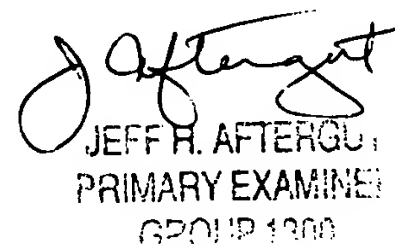 J Aftergut
JEFF H. AFTERGUT
PRIMARY EXAMINER
GROUP 1300